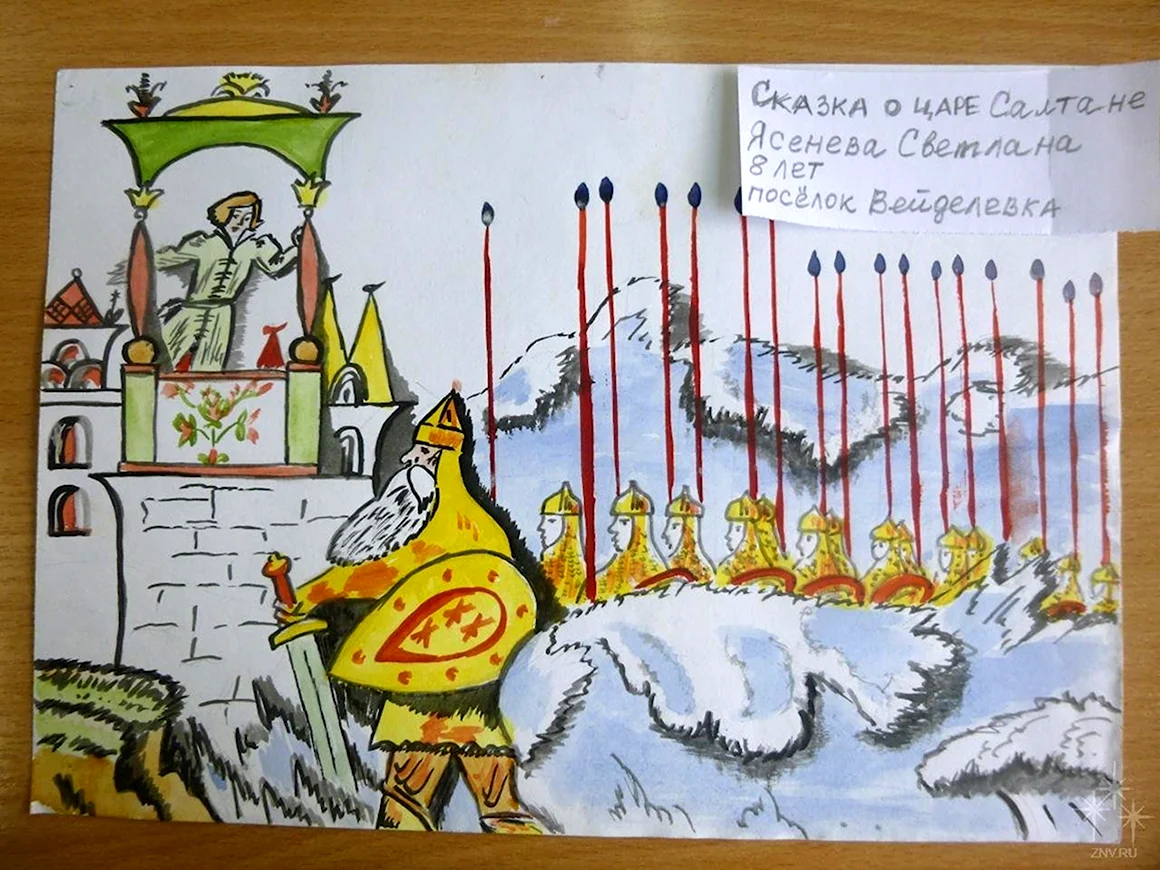 Сказка о царе Салтане
Ясенева Светлана
8 лет
посёлок Вейделевка
ZNV.RU